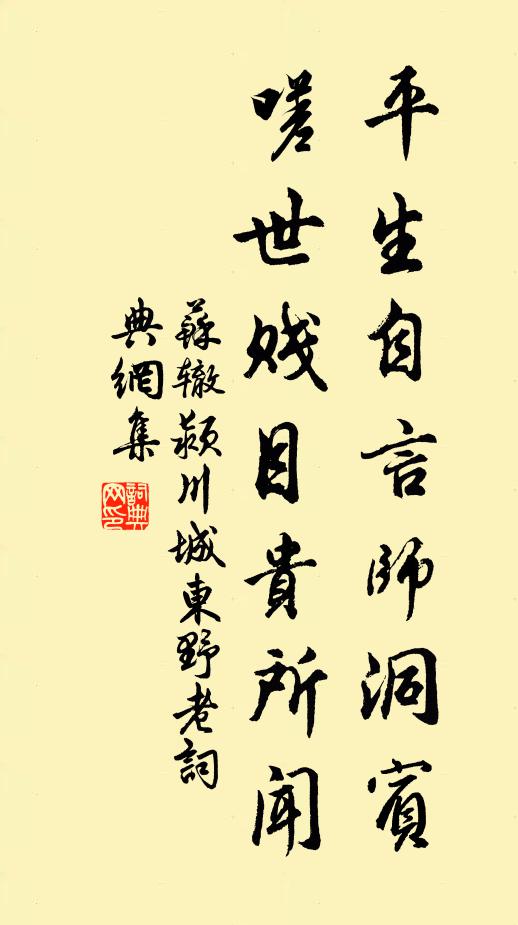 平生自言師洞賓
嗟世賤目貴所聞
蘇轍潁川城東野老詞
典網集
詞典网印